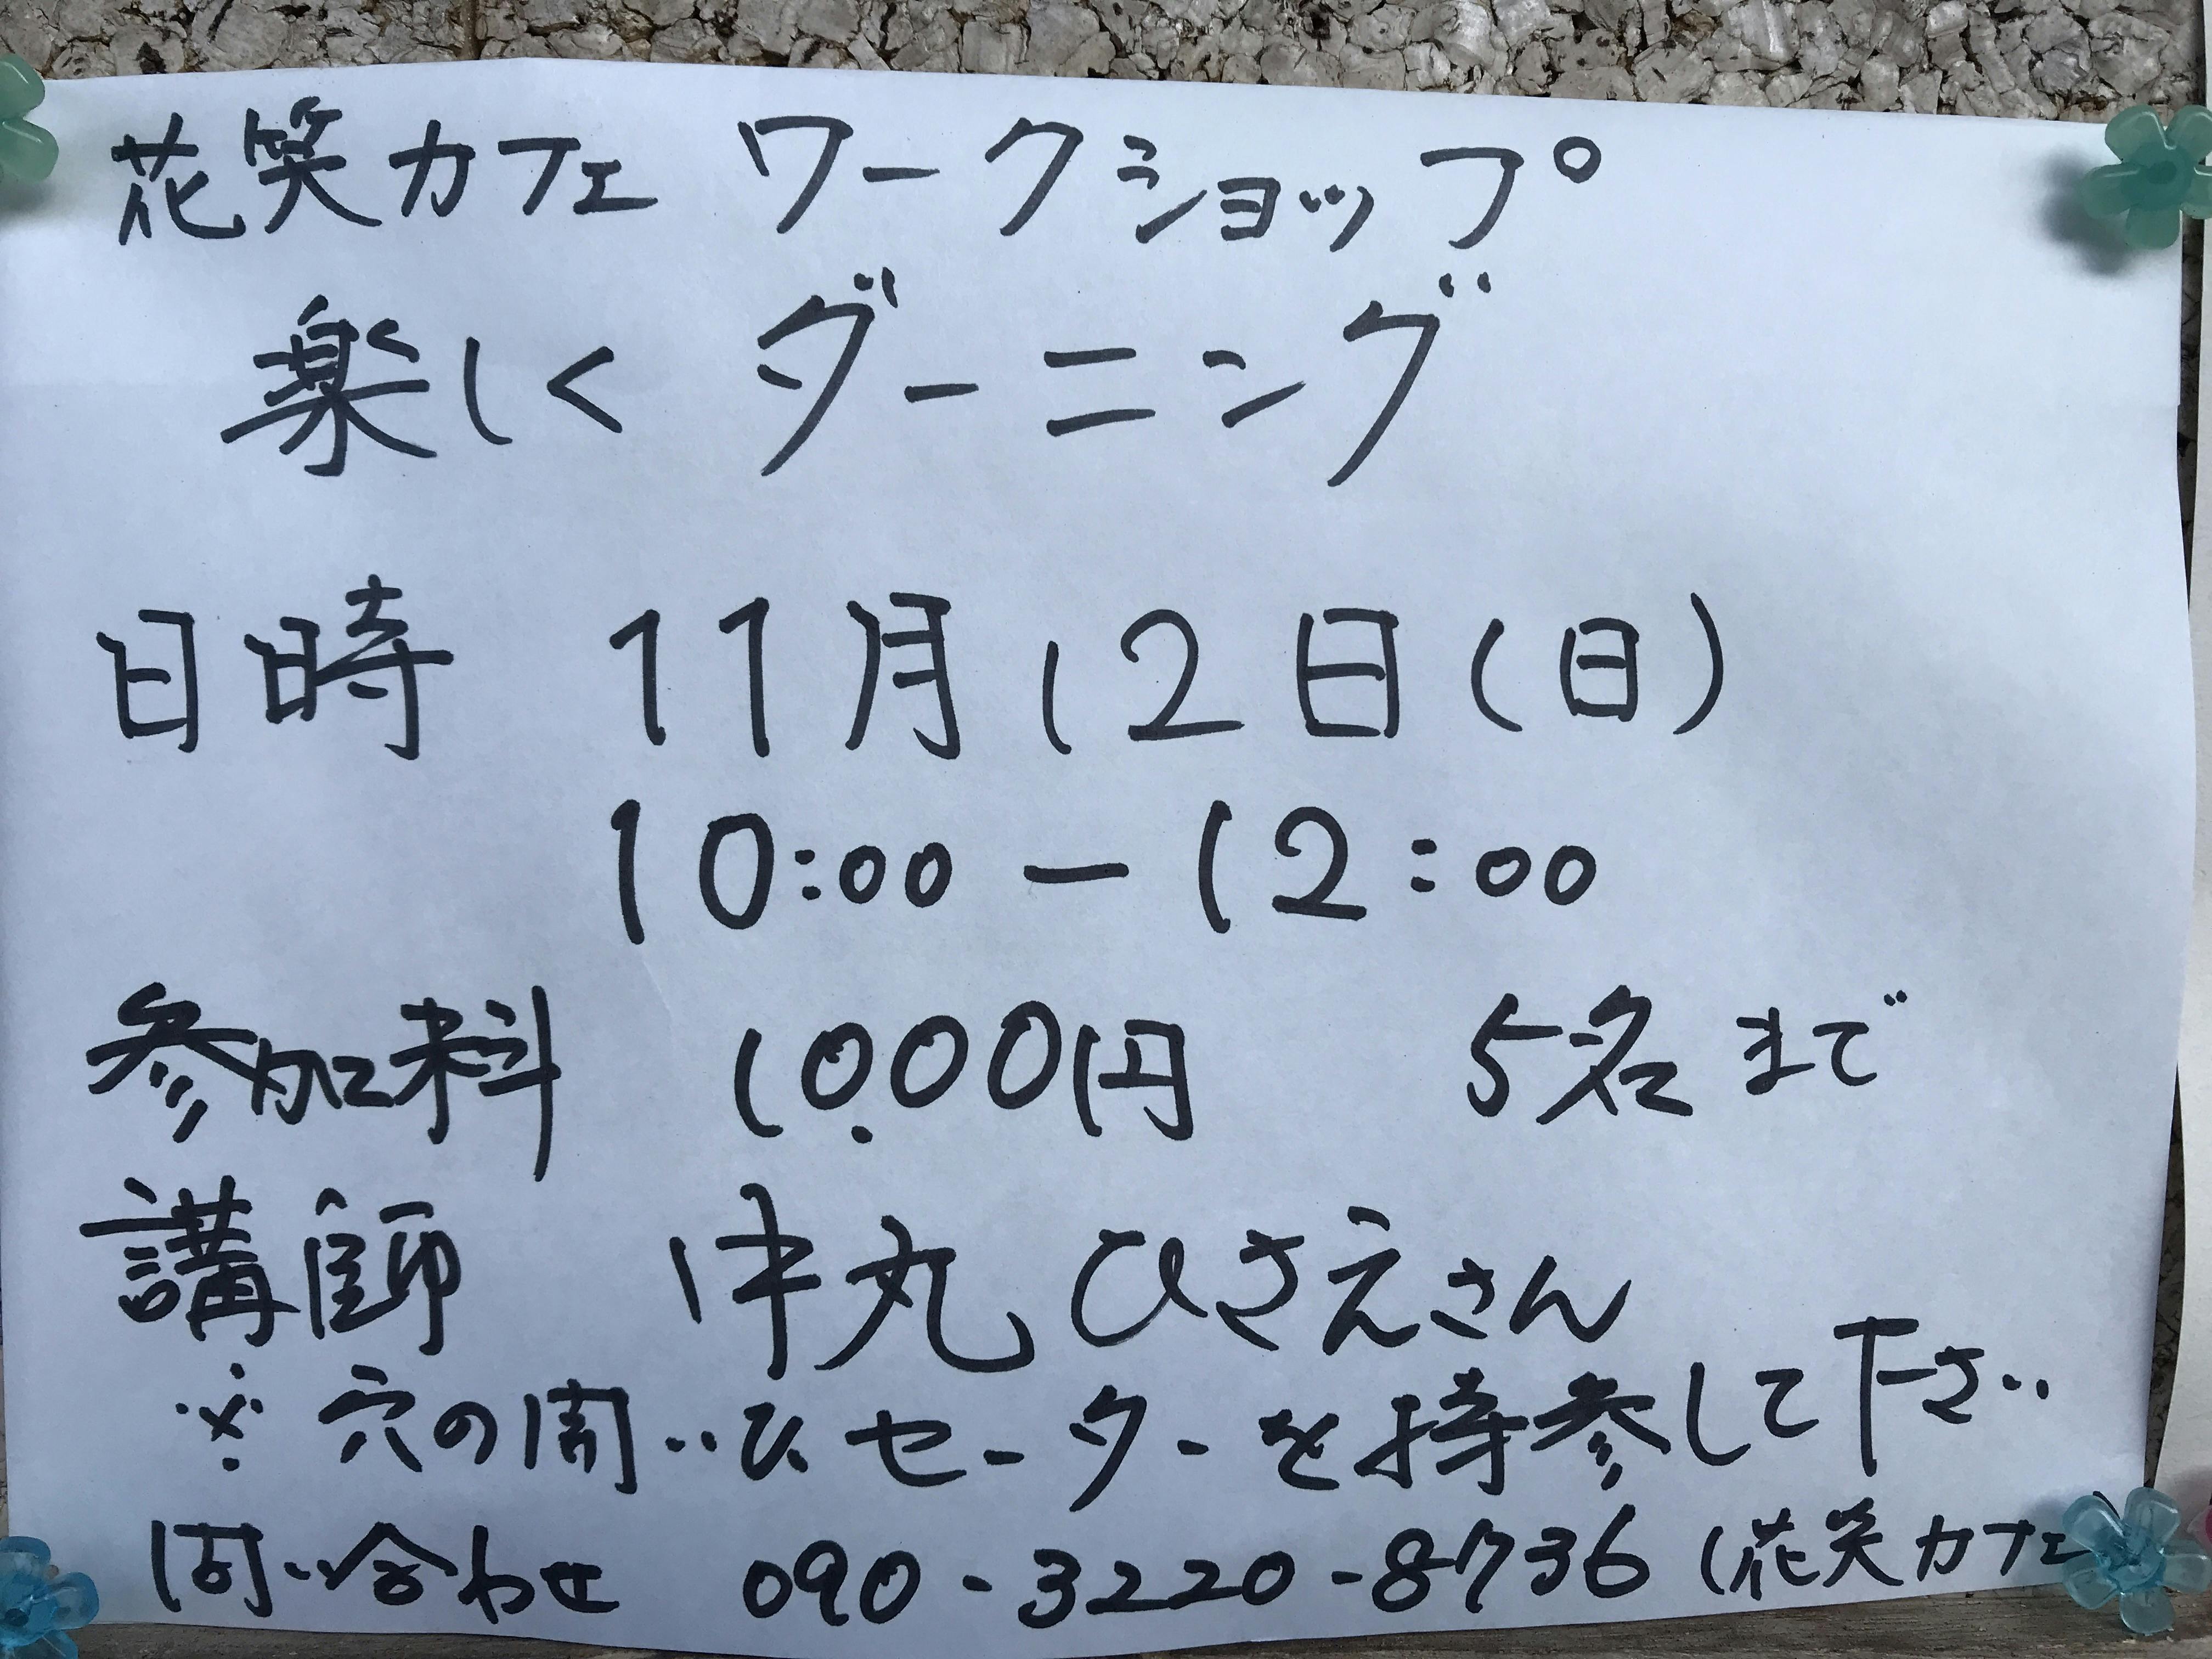 花笑カフェ ワークショップ
楽しく ダーニング
日時 11月12日(日)
10:00-12:00
参加料 1,000円 5名まで
講師 中丸ひさえさん
※穴の開いたセーターを持参して下さい
問い合わせ 090-3220-8736 (花笑カフェ